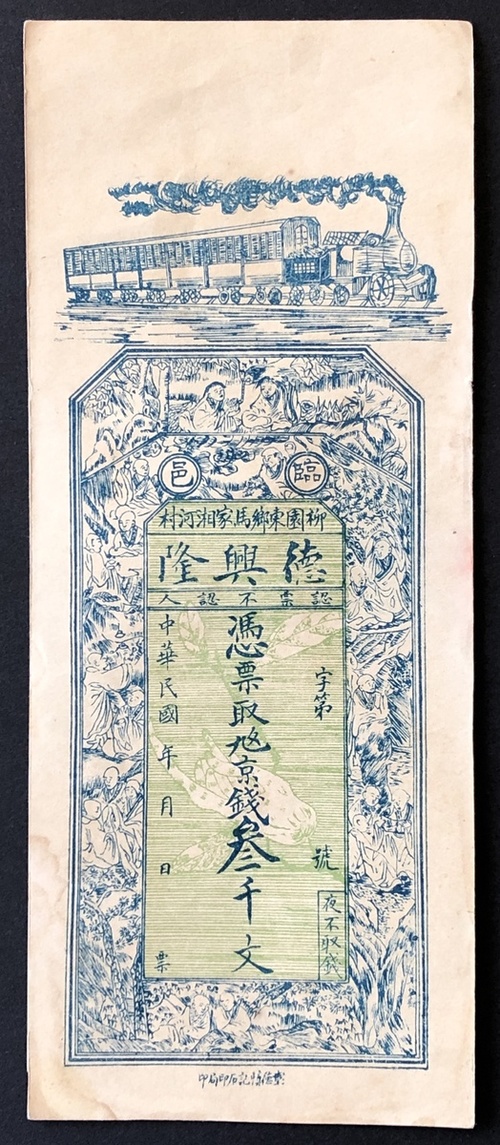 臨邑
柳園東鄉馬家湘河村
德興隆
認票不認人
字第 號
夜不取錢
憑票取兌京錢叁千文
中華民國 年 月 日 票
記石印局印